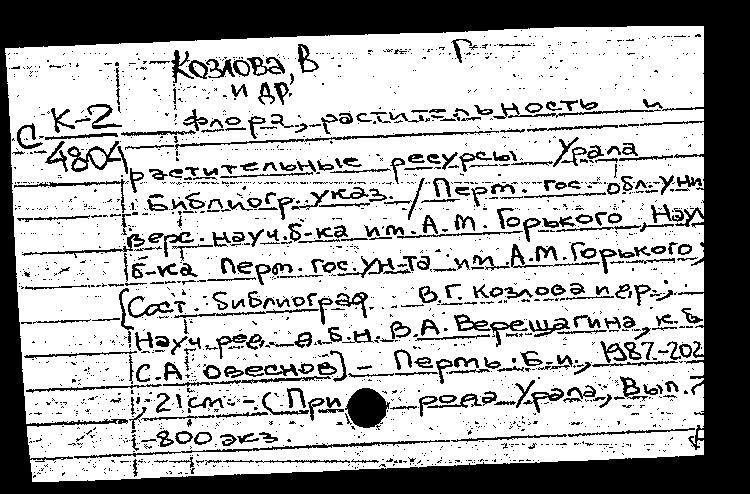 Козлова, В Г
и др.
С К-2 Флора, растительность и
4804 растительные ресурсы Урала
Библиогр. указ. / Перм. гос. обл. уни
верс. науч. б-ка им. А.М. Горького, Науч
б-ка Перм. гос. ун-та им А.М. Горького;
[Сост. библиограф В.Г. Козлова и др.;
Науч. ред. д.б.н. В.А. Верещагина, к.б
С.А Овеснов] - Пермь: Б.и., 1987-202
; 21см. - (Природа Урала; Вып. 7
-800 экз.